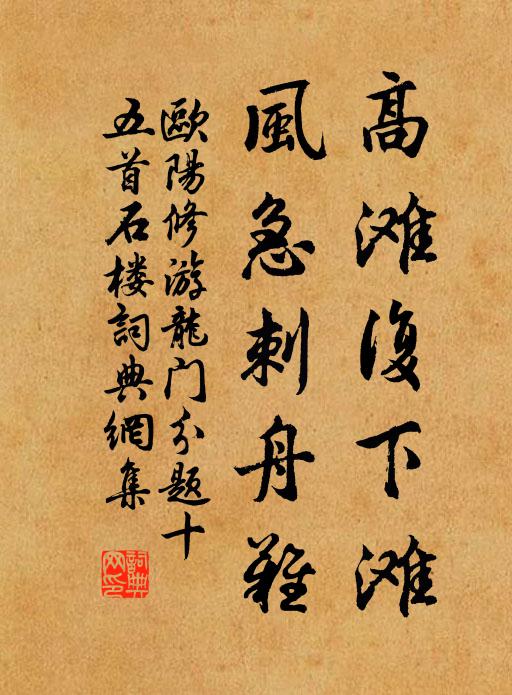 高滩復下滩
風急刺舟難
歐陽修游龍门分题十
五首石楼詞典網集
詞典
网印